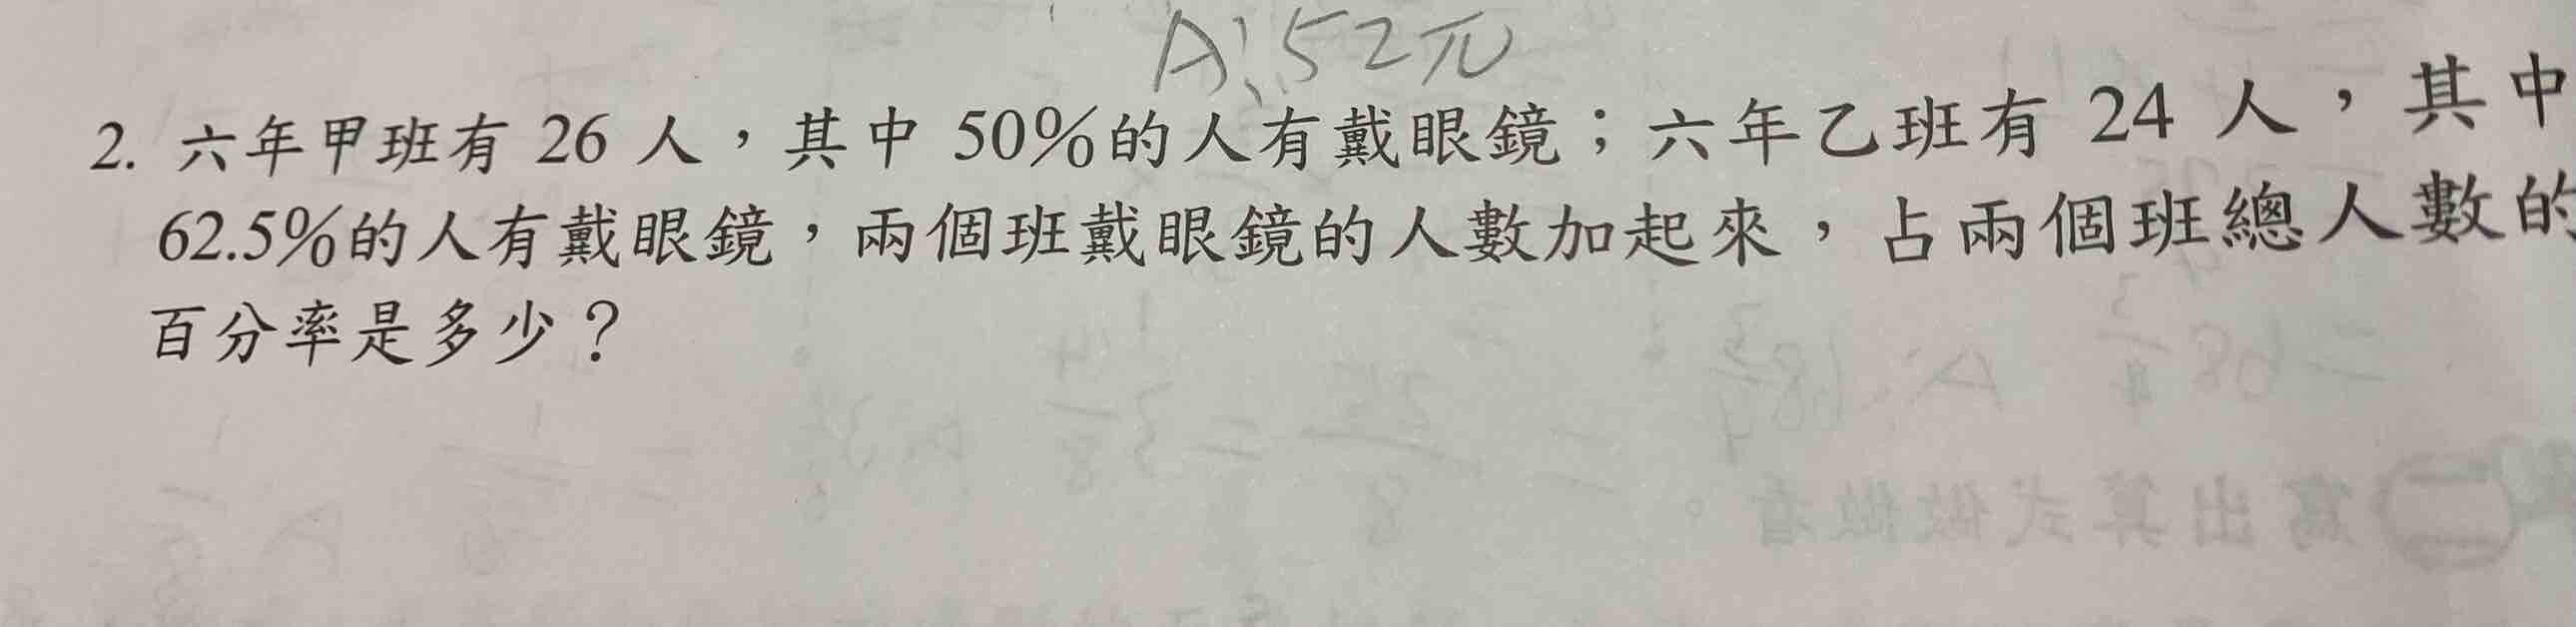 A:52元
2. 六年甲班有 26 人，其中 50%的人有戴眼鏡；六年乙班有 24 人，其中
62.5%的人有戴眼鏡，兩個班戴眼鏡的人數加起來，占兩個班總人數的
百分率是多少？